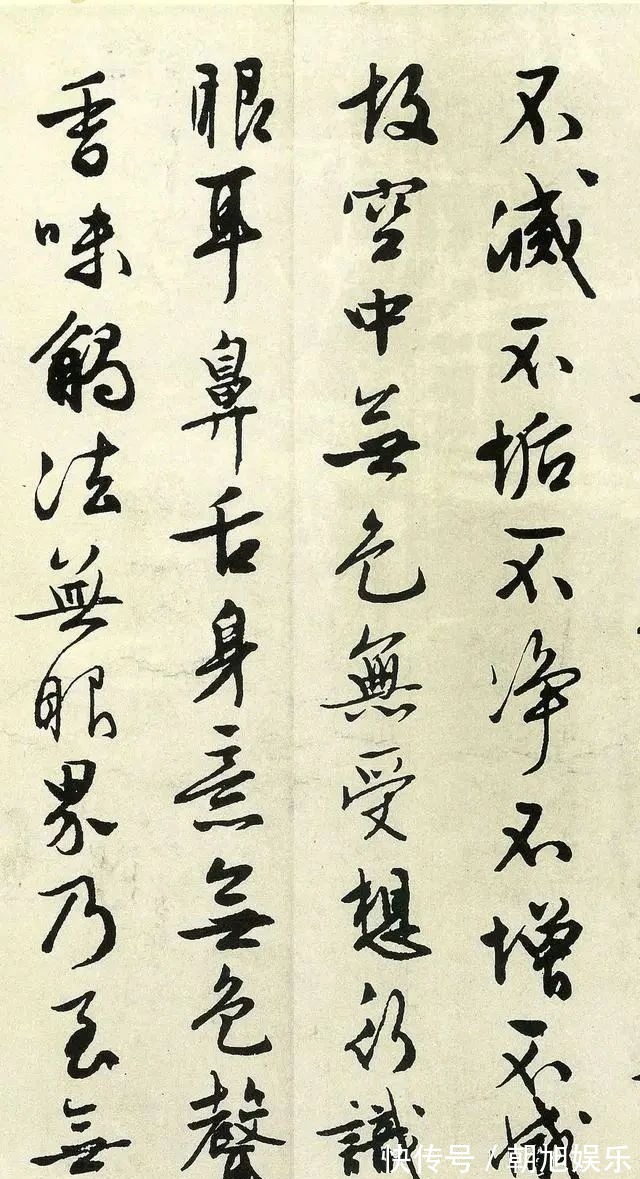 不滅不垢不净不增不減
故空中無色無受想行識
眼耳鼻舌身意無色聲
香味觸法無眼界乃至無
快传号/朝旭娱乐